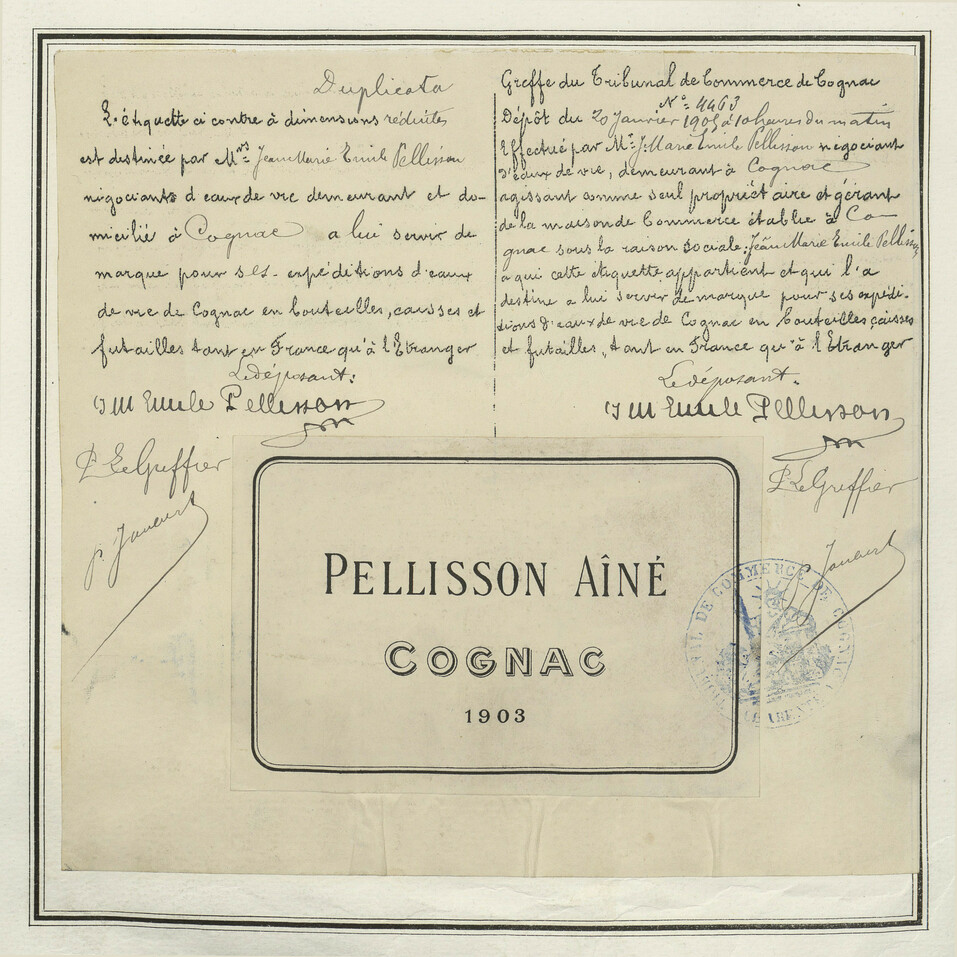 Duplicata
L'étiquette ci contre à dimensions réduites
est destinée par Mrs Jean Marie Emile Pellisson
négociants d'eaux de vie demeurant et do-
micilié à Cognac a lui servir de
marque pour ses expéditions d'eaux
de vie de Cognac en bouteilles, caisses et
futailles tant en France qu'à l'Etranger
Le déposant:
JM Emile Pellisson
P. Le Greffier
Greffe du Tribunal de Commerce de Cognac
N°= 4463
Dépôt du 20 Janvier 1905 à 10 heures du matin
Effectué par Mr J. Marie Emile Pellisson négociant
d'eaux de vie, demeurant à Cognac
agissant comme seul propriétaire et gérant
de la maison de Commerce établie à Co-
gnac sous la raison sociale: Jean Marie Emile Pellisson,
a qui cette étiquette appartient et qui l'a
destine a lui servir de marque pour ses expédi-
tions d'eaux de vie de Cognac en bouteilles caisses
et futailles, tant en France qu'à l'Etranger
Le déposant.
JM Emile Pellisson
P. Le Greffier
PELLISSON AÎNÉ
COGNAC
1903
TRIBUNAL DE COMMERCE DE COGNAC
CHARENTE